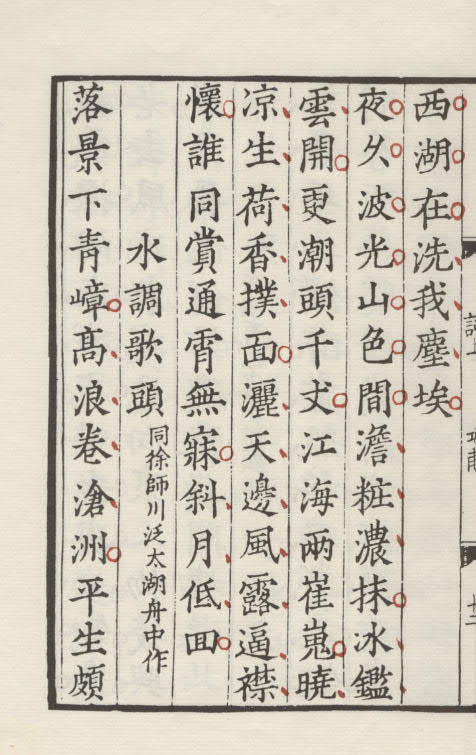 西湖在洗我塵埃
夜久波光山色間澹粧濃抹冰鑑
雲開更潮頭千丈江海兩崔嵬曉
凉生荷香撲面灑天邊風露逼襟
懷誰同賞通霄無寐斜月低回
水調歌頭同徐師川泛太湖舟中作
落景下青嶂高浪卷滄洲平生頗